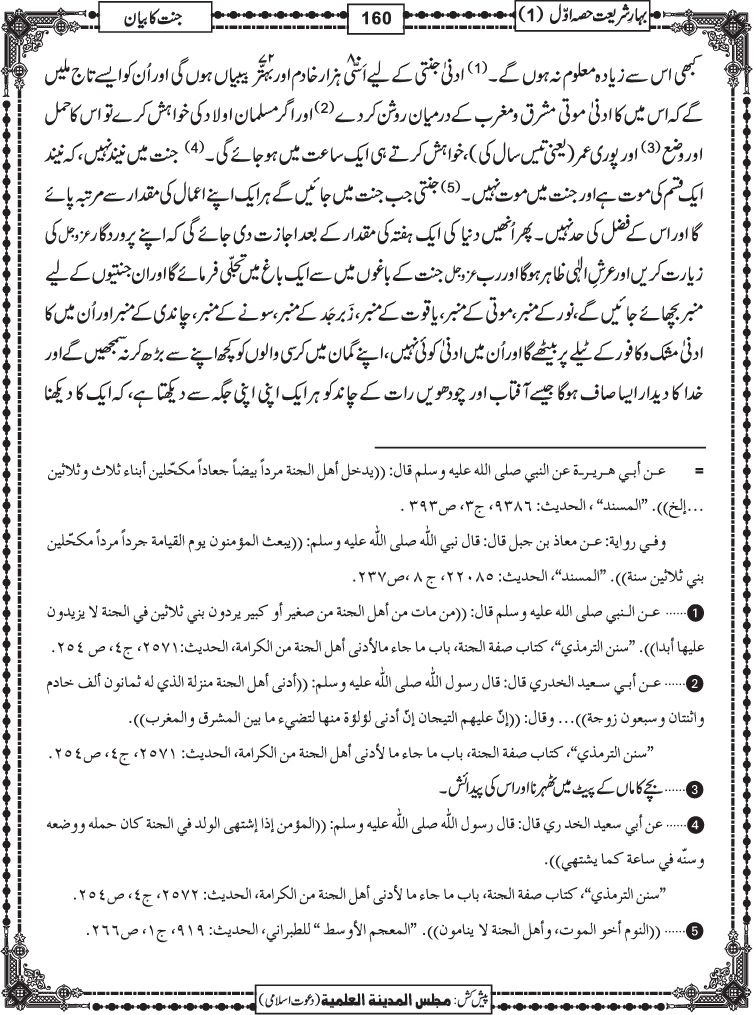 بہارِ شریعت حصہ اوّل (1)
160
جنت کا بیان
کبھی اس سے زیادہ معلوم نہ ہوں گے۔(1) ادنیٰ جنتی کے لیے اَسّی ۸۰ ہزار خادم اور بہتّر ۷۲ بیبیاں ہوں گی اور اُن کو ایسے تاج ملیں
گے کہ اس میں کا ادنیٰ موتی مشرق و مغرب کے درمیان روشن کر دے (2) اور اگر مسلمان اولاد کی خواہش کرے تو اس کا حمل
اور وضع (3) اور پوری عمر (یعنی تیس سال کی)، خواہش کرتے ہی ایک ساعت میں ہو جائے گی۔(4) جنت میں نیند نہیں، کہ نیند
ایک قسم کی موت ہے اور جنت میں موت نہیں۔(5) جنتی جب جنت میں جائیں گے ہر ایک اپنے اعمال کی مقدار سے مرتبہ پائے
گا اور اس کے فضل کی حد نہیں۔ پھر اُنھیں دنیا کی ایک ہفتہ کی مقدار کے بعد اجازت دی جائے گی کہ اپنے پروردگار عزوجل کی
زیارت کریں اور عرشِ الٰہی ظاہر ہوگا اور رب عزوجل جنت کے باغوں میں سے ایک باغ میں تجلّی فرمائے گا اور ان جنتیوں کے لیے
منبر بچھائے جائیں گے، نور کے منبر، موتی کے منبر، یاقوت کے منبر، زَبرجَد کے منبر، سونے کے منبر، چاندی کے منبر اور اُن میں کا
ادنیٰ مشک و کافور کے ٹیلے پر بیٹھے گا اور اُن میں ادنیٰ کوئی نہیں، اپنے گمان میں کرسی والوں کو کچھ اپنے سے بڑھ کر نہ سمجھیں گے اور
خدا کا دیدار ایسا صاف ہوگا جیسے آفتاب اور چودھویں رات کے چاند کو ہر ایک اپنی اپنی جگہ سے دیکھتا ہے، کہ ایک کا دیکھنا
= عـن أبـي هـريـرـة عن النبي صلى الله عليه وسلم قال: ((يدخل أهل الجنة مرداً بيضاً جعاداً مكحّلين أبناء ثلاث وثلاثين
...إلخ)). ”المسند“، الحديث: ٩٣٨٦، ج٣، ص٣٩٣.
وفـي رواية: عـن معاذ بن جبل قال: قال نبي الله صلى الله عليه وسلم: ((يبعث المؤمنون يوم القيامة جرداً مرداً مكحّلين
بني ثلاثين سنة)). ”المسند“، الحديث: ٢٢٠٨٥، ج٨، ص٢٣٧.
1...... عـن الـنبي صلى الله عليه وسلم قال: ((من مات من أهل الجنة من صغير أو كبير يردون بني ثلاثين في الجنة لا يزيدون
عليها أبدا)). ”سنن الترمذي“، كتاب صفة الجنة، باب ما جاء مالأدنى أهل الجنة من الكرامة، الحديث: ٢٥٧١، ج٤، ص ٢٥٤.
2...... عـن أبـي سـعيد الخدري قال: قال رسول الله صلى الله عليه وسلم: ((أدنى أهل الجنة منزلة الذي له ثمانون ألف خادم
واثنتان وسبعون زوجة))... وقال: ((إنّ عليهم التيجان إنّ أدنى لؤلؤة منها لتضيء ما بين المشرق والمغرب)).
”سنن الترمذي“، كتاب صفة الجنة، باب ما جاء ما لأدنى أهل الجنة من الكرامة، الحديث: ٢٥٧١، ج٤، ص٢٥٤.
3...... بچے کا ماں کے پیٹ میں ٹھہرنا اور اس کی پیدائش۔
4...... عن أبي سعيد الخدري قال: قال رسول الله صلى الله عليه وسلم: ((المؤمن إذا إشتهى الولد في الجنة كان حمله ووضعه
وسنّه في ساعة كما يشتهي)).
”سنن الترمذي“، كتاب صفة الجنة، باب ما جاء ما لأدنى أهل الجنة من الكرامة، الحديث: ٢٥٧٢، ج٤، ص٢٥٤.
5...... ((النوم أخو الموت، وأهل الجنة لا ينامون)). ”المعجم الأوسط“ للطبراني، الحديث: ٩١٩، ج١، ص٢٦٦.
پیش کش: مجلس المدینة العلمیة (دعوتِ اسلامی)